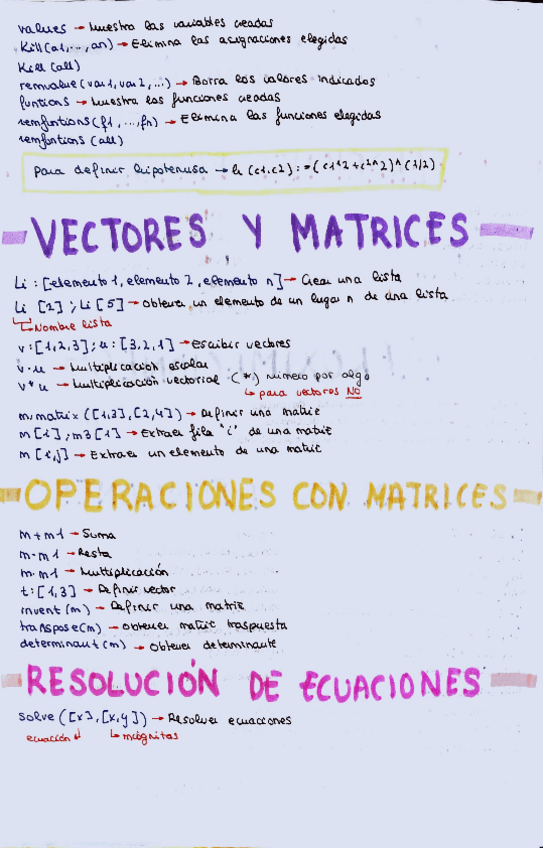 values → Muestra las variables creadas
Kill(a1,...,an) → Elimina las asignaciones elegidas
Kill(all)
remvalue(var1,var2,...) → Borra los valores indicados
funtions → Muestra las funciones creadas
remfuntions(f1,...,fn) → Elimina las funciones elegidas
remfuntions(all)
Para definir hipotenusa → h(c1,c2):=(c1^2+c2^2)^(1/2)
VECTORES Y MATRICES
Li:[elemento 1, elemento 2, elemento n] → Crear una lista
Li [2]; Li [5] → Obtener un elemento de un lugar n de una lista
↳ Nombre lista
v:[1,2,3]; u:[3,2,1] → Escribir vectores
v·u → Multiplicación escalar
v*u → Multiplicación vectorial (*) número por algo
↳ para vectores NO
m:matrix([1,3],[2,4]) → Definir una matriz
m[i]; m3[1] → Extraer fila "i" de una matriz
m[i,j] → Extraer un elemento de una matriz
OPERACIONES CON MATRICES
m+m1 → Suma
m-m1 → Resta
m·m1 → Multiplicación
t:[1,3] → Definir vector
invent(m) → Definir una matriz
transpose(m) → Obtener matriz traspuesta
determinant(m) → Obtener determinante
RESOLUCIÓN DE ECUACIONES
solve([x],[x,y]) → Resolver ecuaciones
ecuación ↲ ↳ incógnitas